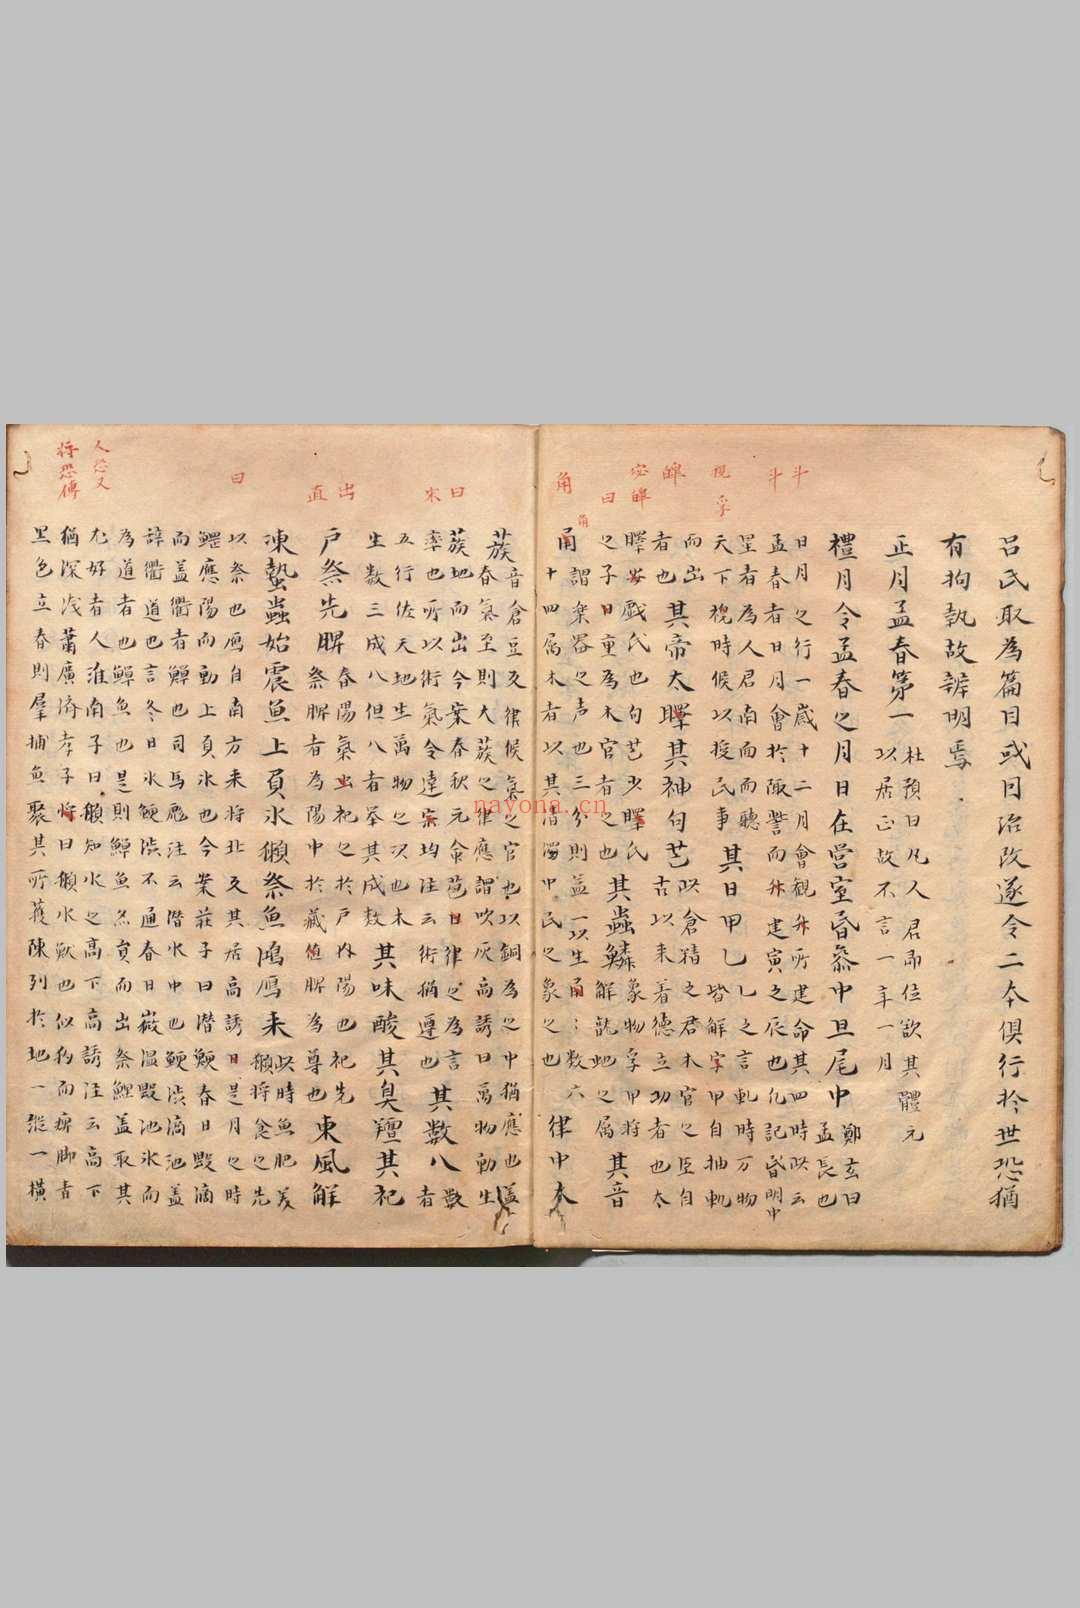 呂氏取為篇目或同治改遂令二本俱行於世恐猶
有拘執故辨明焉
正月孟春第一
杜預曰凡人君即位欲其體元
以居正故不言一年一月
禮月令孟春之月日在營室昏參中旦尾中
鄭玄曰
孟長也
日月之行一歲十二月會觀斗所建命其四時此云
孟春者日月會於陬訾而斗建寅之辰也凡記昏明中
星者為人君南面而聽
天下視時候以授民事
其日甲乙
乙之言軋時万物
皆解孚甲自抽軋
而出
者也
其帝太皞其神句芒
此倉精之君木官之臣自
古以来著德立功者也太
皞宓戯氏也句芒少皞氏
之子曰重為木官者之也
其蟲鱗
象物孚甲将
解龍虵之属
其音
角
謂樂器之声也三分則益一以生角〻数六
十四属木者以其清濁中民之象之也
律中太
蔟
音倉豆反律候氣之官也以銅為之中猶應也盖
春氣至則大蔟之律應謂吹灰高誘曰萬物動生
蔟地而出今案春秋元命苞曰律之為言
率也所以術氣令達宋均注云術猶遵也
其数八
数
者
五行佐天地生萬物之次也木
生数三成八但八者举其成数
其味酸其臭羶其祀
户祭先脾
春陽氣出祀之於户内陽也祀先
祭脾者為陽中於藏值脾為尊也
東風解
凍蟄蟲始震魚上負氷獺祭魚鴻鴈来
此時魚肥美
獺将食之先
以祭也鴈自南方来将北反其居高誘曰是月之時
鱧應陽而動上負氷也今案莊子曰潜鰋春日毀滴
而盖衢者鱓也司馬彪注云潜水中也鰋涉滴池盖
辞衢道也言冬日氷鰋涉不通春日嶶温毀池氷而
為道者也鱓魚也是則鱓魚点負而出祭鯉盖取其
尤好者人淮南子曰獺知水之高下高誘注云高下
猶深浅蕭廣濟孝子将曰獺水獸也似狗而痺脚青
黒色立春則羣捕魚聚其所获陳列於地一縦一横
斗
斗
視孚
皞
宓皞
曰
角
角
曰
宋
出
直
曰
人恐又
将恐傳
nayona.cn